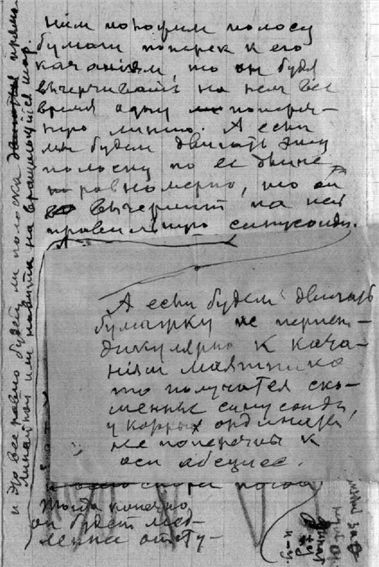 ним положим полосу
бумаги поперек к его
качаниям, то он будет
вычерчивать на ней все
время одну попереч-
ную линию. А если
мы будем двигать эту
полоску по ее длине
равномерно, то он
вычертит на ней
правильную синусоиду.
А если будем двигать
бумажку не перпен-
дикулярно к кача-
ниям маятника
то получатся ско-
шенные синусоиды,
у которых ординаты
не поперечны к
оси абсцисс.
Тогда конечно
он будет мед-
ленно отсту-
и это все равно будет ли полоска прямо-
линейной или навита на вращающийся шар.